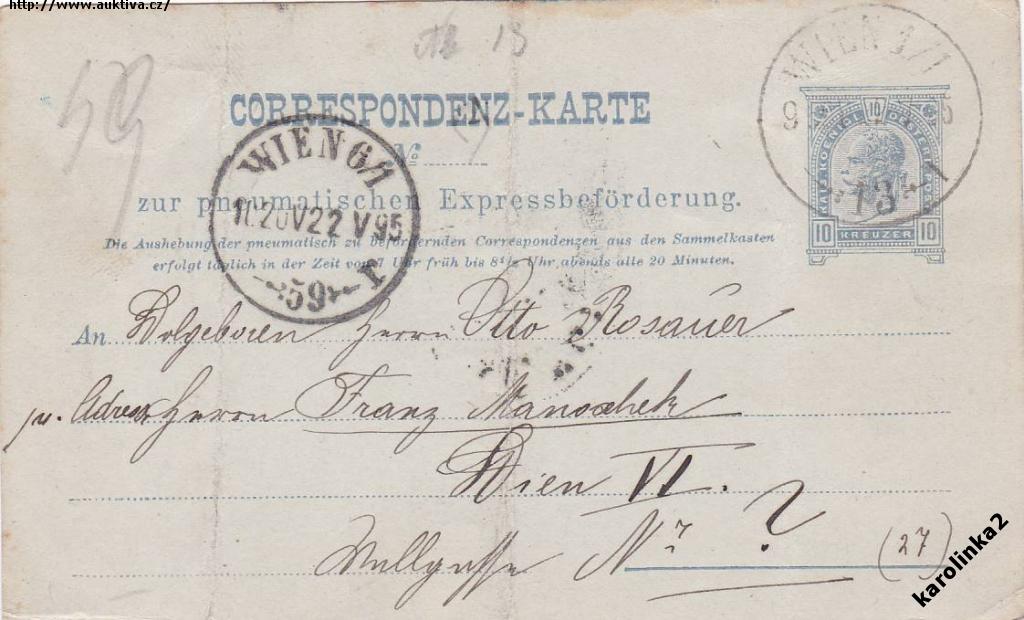 http://www.auktiva.cz/
13
59
CORRESPONDENZ-KARTE
No
zur pneumatischen Expressbeförderung.
Die Aushebung der pneumatisch zu befördernden Correspondenzen aus den Sammelkasten
erfolgt täglich in der Zeit von 7 Uhr früh bis 8½ Uhr abends alle 20 Minuten.
WIEN 6/1
22 V 95
59
WIEN 1/1
9
13
1
KAIS. KOENIGL. OESTERR. POST
10
10 KREUZER 10
An Wolgeboren Herrn Otto Rosauer
pr. Adresse Herrn Franz Manoschek
Wien VI.
Wallgasse Nr ? (27)
karolinka2